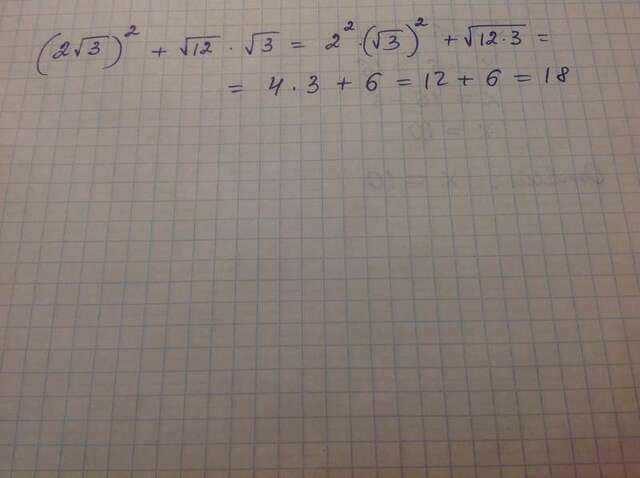 (2√3)² + √12 · √3 = 2² · (√3)² + √12·3 =
= 4 · 3 + 6 = 12 + 6 = 18